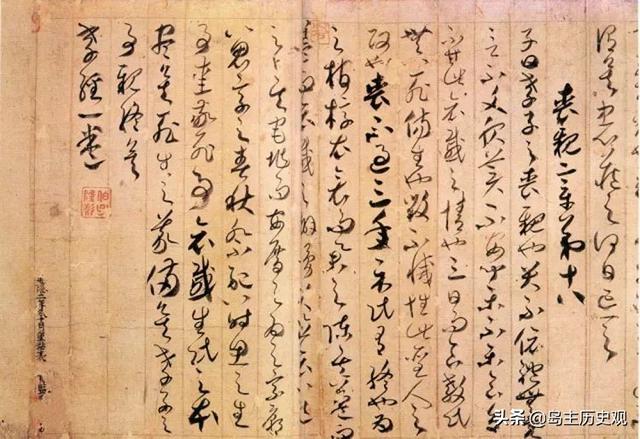 謂矣忠心藏之何日忘之
喪親章第十八
子曰孝子之喪親也哭不偯禮無容
言不文服美不安聞樂不樂食旨
不甘此哀慼之情也三日而食教民
無以死傷生也毀不滅性此聖人之
政也喪不過三年示民有終也為
之棺椁衣衾而舉之陳其簠簋
而哀慼之擗踊哭泣哀以送
之卜其宅兆而安厝之為之宗廟
以鬼享之春秋祭祀以時思之生
事愛敬死事哀慼生民之本
盡矣死生之義備矣孝子之
事親終矣
孝經一卷
头条 @岛主历史观